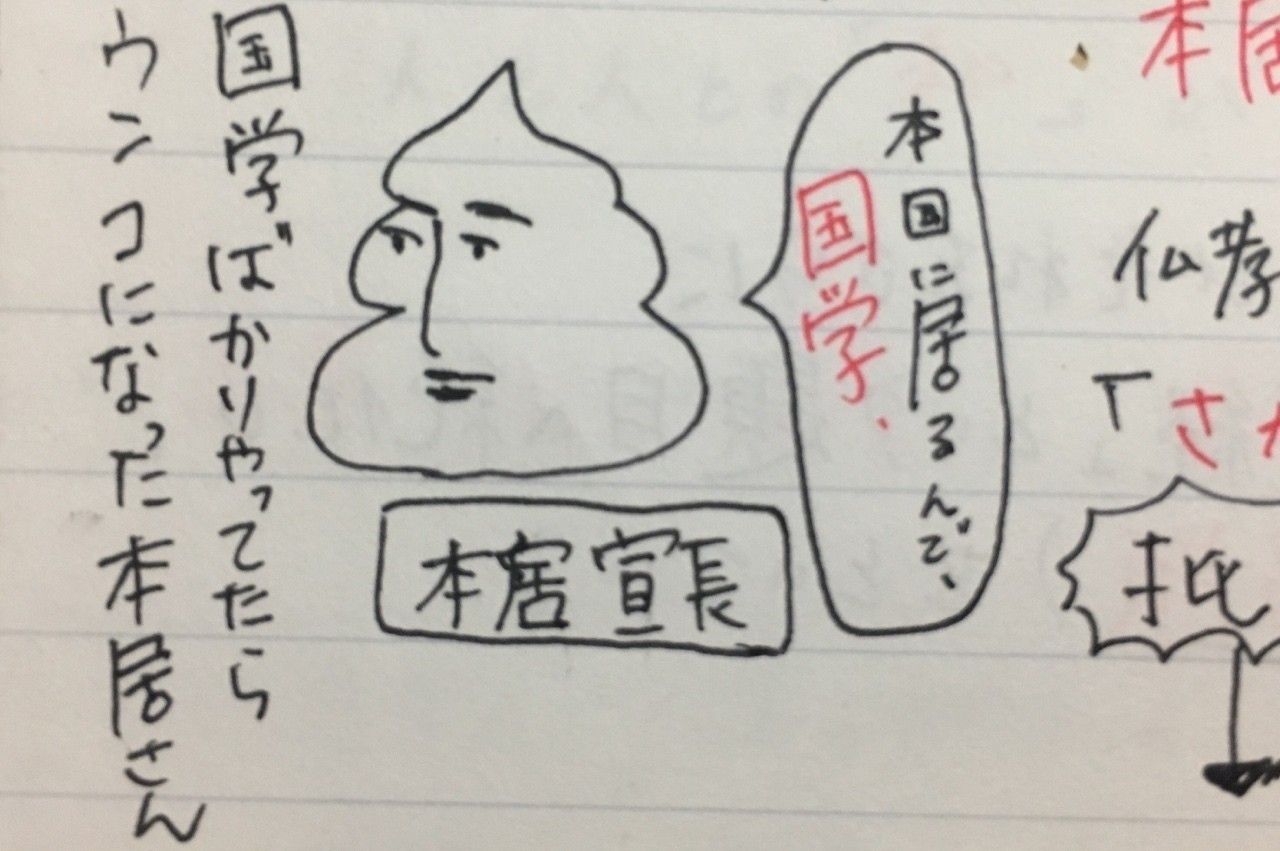 本居
仏孝
「さか
批
本国に居るんで、
国学.
本居宣長
国学ばかりやってたら
ウンコになった本居さん